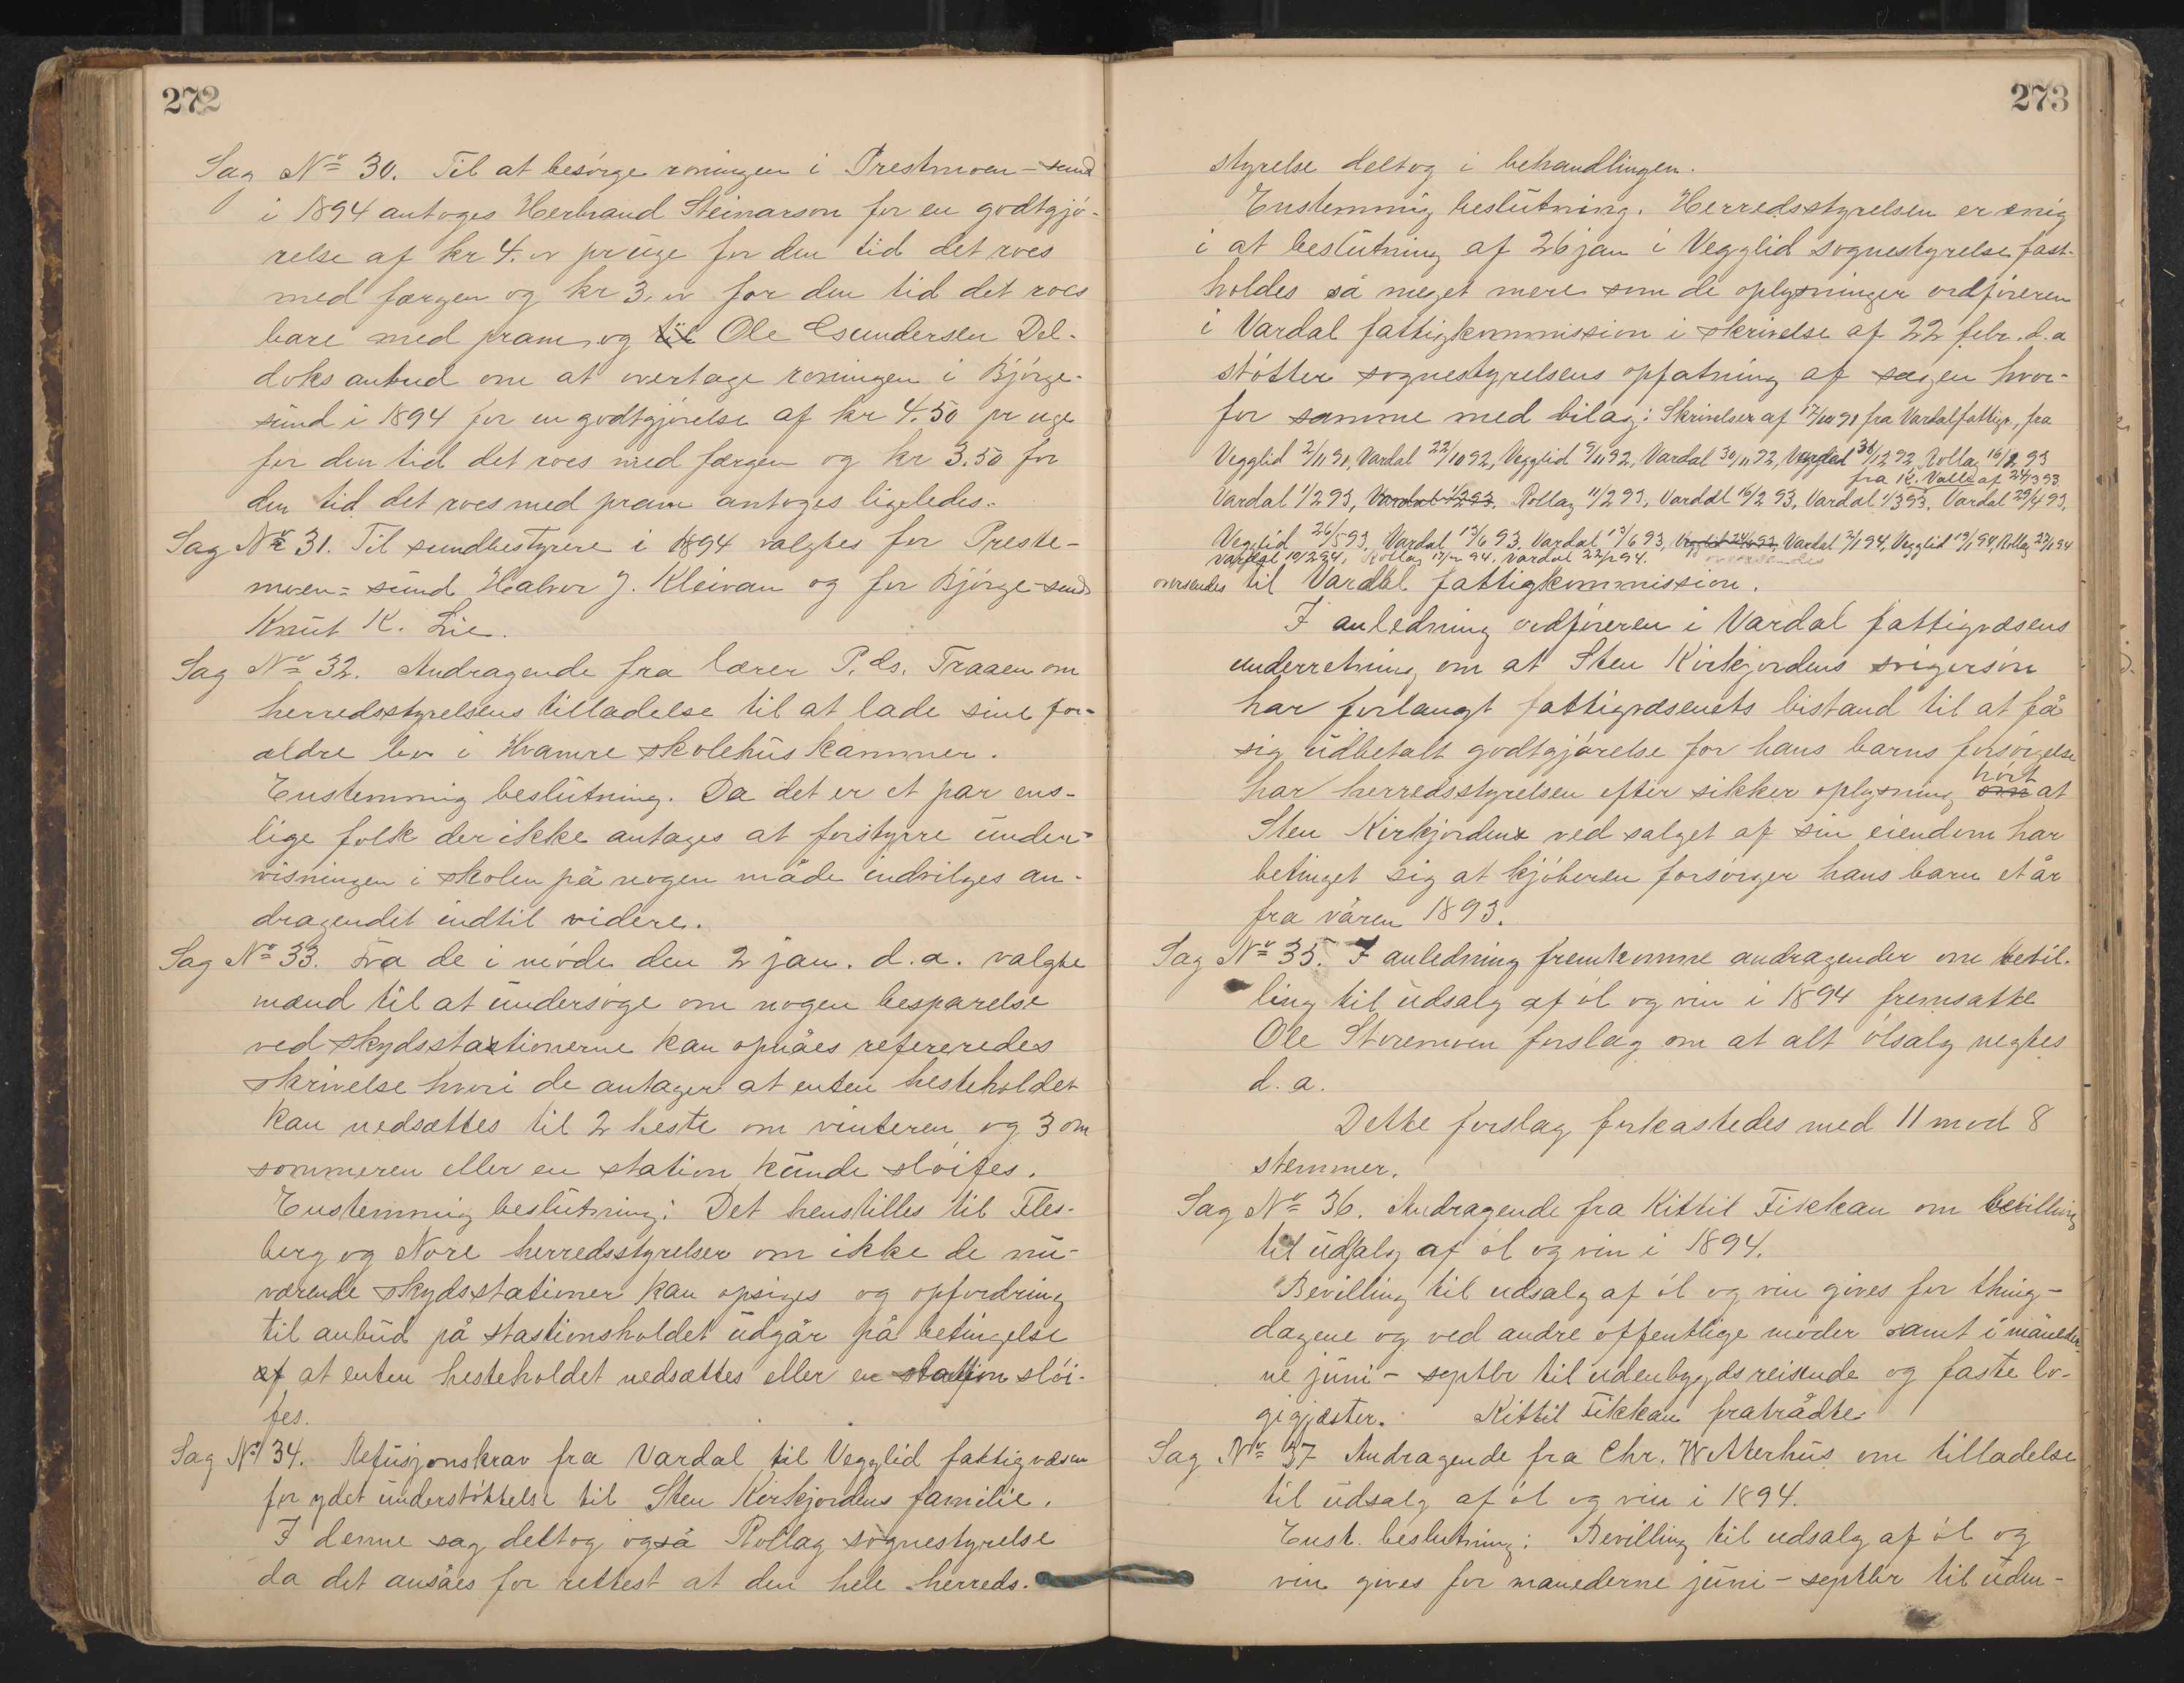 272
Sag No 30. Til at besørge roningen i Prestmoen-sund
i 1894 antoges Herbrand Steinarson for en godtgjø-
relse af kr 4.00 pr uge for den tid det roes
med færgen og kr 3.00 for den tid det roes
bare med pram, og til Ole Gundersen Del-
doks anbud om at overtage roningen i Bjørge-
sund i 1894 for en godtgjørelse af kr 4.50 pr uge
for den tid det roes med færgen og kr 3.50 for
den tid det roes med pram antoges ligeledes.
Sag No 31. Til sundbestyrere i 1894 valgtes for Preste-
moen-sund Halvor J. Kleivan og for Bjørge-sund
Knut K. Lie.
Sag No 32. Andragende fra lærer P. Es. Traaen om
herredsstyrelsens tilladelse til at lade sine for-
ældre bo i Hvamre skolehus kammer.
Enstemmig beslutning. Da det er et par ens-
lige folk der ikke antages at forstyrre under-
visningen i skolen på nogen måde indvilges an-
dragendet indtil videre.
Sag No 33. Fra de i møde den 2 jan. d.a. valgte
mænd til at undersøge om nogen besparelse
ved skydsstastionerne kan opnåes refereredes
skrivelse hvori de antager at enten hesteholdet
kan nedsættes til 2 heste om vinteren og 3 om
sommeren eller en station kunde sløifes.
Enstemmig beslutning: Det henstilles til Fles-
berg og Nore herredsstyrelser om ikke de nu-
værende skydsstationer kan opsiges og opfordring
til anbud på stastionsholdet udgår på betingelse
af at enten hesteholdet nedsættes eller en station sløi-
fes.
Sag No 34. Refusjonskrav fra Vardal til Vegglid fattigvæsen
for ydet understøttelse til Sten Kirkjordens familie.
I denne sag deltog også Rollag sognestyrelse
da det ansåes for rettest at den hele herreds-
273
styrelse deltog i behandlingen.
Enstemmig beslutning. Herredsstyrelsen er enig
i at beslutning af 26 jan i Vegglid sognestyrelse fast-
holdes så meget mere som de oplysninger ordføreren
i Vardal fattigkommission i skrivelse af 22 febr. d.a
støtter sognestyrelsens opfatning af sagen hvor-
for samme med bilag: Skrivelser af 17/10 91 fra Vardal fattigv., fra
Vegglid 2/11 91, Vardal 22/10 92, Vegglid 9/11 92, Vardal 30/11 92, Vegglid 31/12 92, Rollag 16/2 93
fra K. Valle af 24/3 93
Vardal 1/2 93, Vardal 1/2 93, Rollag 11/2 93, Vardal 16/2 93, Vardal 1/3 93, Vardal 29/4 93,
Vegglid 26/5 93, Vardal 13/6 93, Vardal 13/6 93, Vegglid 24/6 93, Vardal 2/1 94, Vegglid 19/1 94, Rollag 27/1 94
Vardal 10/2 94, Rollag 17/2 94, Vardal 22/2 94.
oversendes til Vardal fattigkommission.
I anledning ordføreren i Vardal fattigvæsens
underretning om at Sten Kirkjordens svigersøn
har forlangt fattigvæsenets bistand til at få
sig udbetalt godtgjørelse for hans barns forsørgelse
hørt
har herredsstyrelsen efter sikker oplysning om at
Sten Kirkjorden ved salget af sin eiendom har
betinget sig at kjøberen forsørger hans barn et år
fra våren 1893.
Sag No 35. I anledning fremkomne andragender om bevil-
ling til udsalg af øl og vin i 1894 fremsatte
Ole Storemoen forslag om at alt ølsalg negtes
d.a.
Dette forslag forkastedes med 11 mod 8
stemmer.
Sag No 36. Andragende fra Kittil Fikkan om bevilling
til udsalg af øl og vin i 1894.
Bevilling til udsalg af øl og vin gives for thing-
dagene og ved andre offentlige møder samt i måneder-
ne juni - septbr til udenbygds reisende og faste lo-
gigjæster. Kittil Fikkan fratrådte
Sag No 37 Andragende fra Chr. W Aterhus om tilladelse
til udsalg af øl og vin i 1894.
Enst. beslutning: Bevilling til udsalg af øl og
vin gives for månederne juni - septbr til uden-